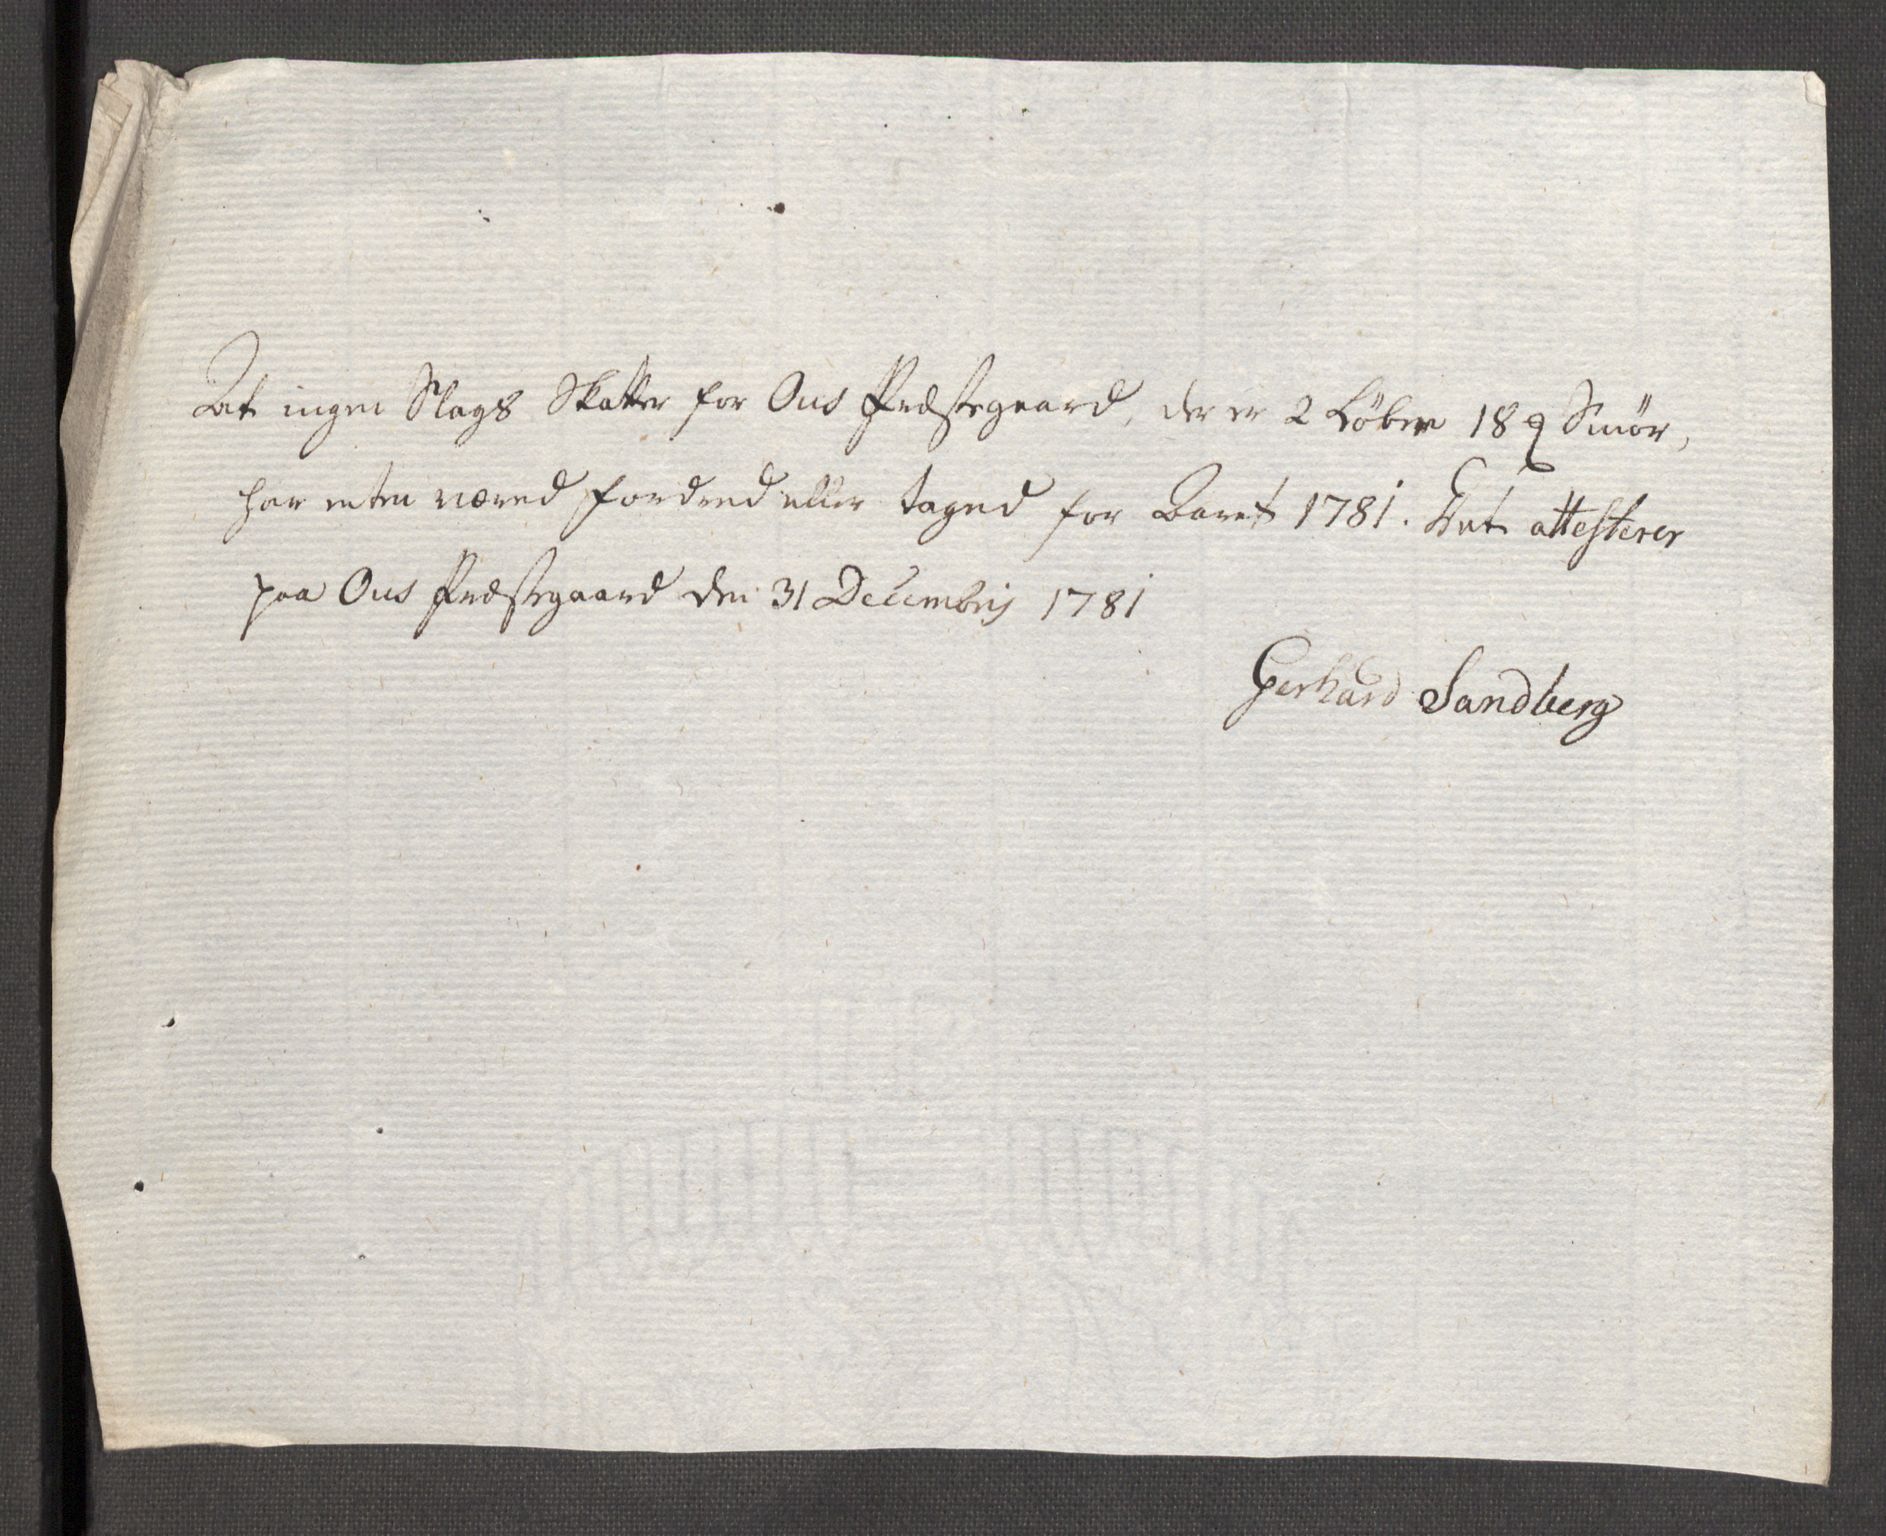 At ingen Slags Skatter for Ous Præstegaard, der er 2 Løber 18 ℔ Smør,
har enten været fordred eller taged for Aaret 1781. Det attesterer
paa Ous Præstegaard den 31 Decembris 1781
Gerhard Sandberg